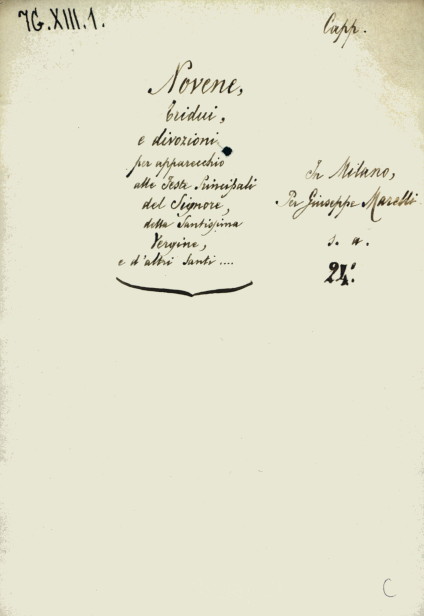 7G.XIII.1.
Capp.
Novene,
Tridui,
e divozioni
per apparecchio
alle Feste Principali
del Signore,
della Santissima
Vergine,
e d'altri Santi ....
In Milano,
Per Giuseppe Marelli
s. a.
24.°
C